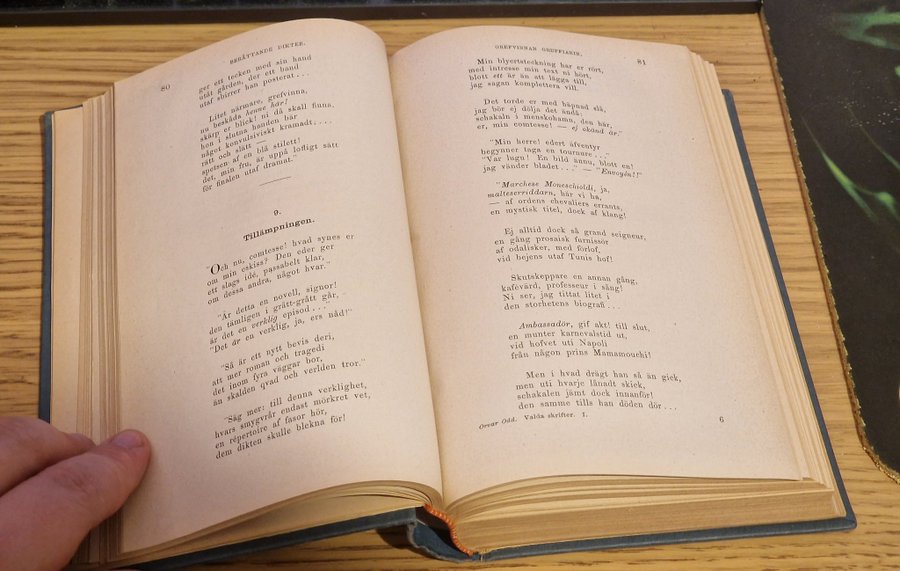 80
BERÄTTANDE DIKTER.
ger ett tecken med sin hand
utåt gården, der ett band
utaf sbirrer han posterat...
Litet närmare, grefvinna,
nu beskåda henne här!
skärp er blick! ni då skall finna,
hon i slutna handen bär
något konvulsiviskt kramadt...
rätt och slätt —
spetsen af en blå stilett!
det, min fru, är uppå loftigt sätt
för finalen utaf dramat."
9.
Tillämpningen.
"Och nu, comtesse! hvad synes er
om min eskiss? Den eder ger
ett slags idé, passabelt klar,
om dessa andra, något hvar."
"Är detta en novell, signor!
den tämligen i grått-grått går,
är det en verklig episod..."
"Det är en verklig, ja, ers nåd!"
"Så är ett nytt bevis deri,
att mer roman och tragedi
det inom fyra väggar bor,
än skalden qvad och verlden tror."
"Säg mer: till denna verklighet,
hvars smygvrår endast mörkret vet,
en répertoire af fasor hör,
dem dikten skulle blekna för!
GREFVINNAN GRUFFIAKIN.
81
Min blyertsteckning har er rört,
med intresse min text ni hört,
blott ett är än att lägga till,
jag sagan komplettera vill.
Det torde er med häpnad slå,
jag bör ej dölja det ändå:
schakaln i menskohamn, den här,
er, min comtesse! — ej okänd är."
"Min herre! edert äfventyr
begynner taga en tournure..."
"Var lugn! En bild ännu, blott en!
jag vänder bladet..." — "Envoyén!"
"Marchese Moneschioldi, ja,
malteserriddarn, här vi ha,
— af ordens chevaliers errants,
en mystisk titel, dock af klang!
Ej alltid dock så grand seigneur,
en gång prosaisk furnissör
af odalisker, med förlof,
vid bejens utaf Tunis hof!
Skutskeppare en annan gång,
kafévärd, professeur i sång!
Ni ser, jag tittat litet i
den storhetens biografi...
Ambassadör, gif akt! till slut,
en munter karnevalstid ut,
vid hofvet uti Napoli
från någon prins Mamamouchi!
Men i hvad drägt han så än gick,
men uti hvarje lånadt skick,
schakalen jämt dock innanför!
den samme tills han döden dör...
Orvar Odd. Valda skrifter. I.
6